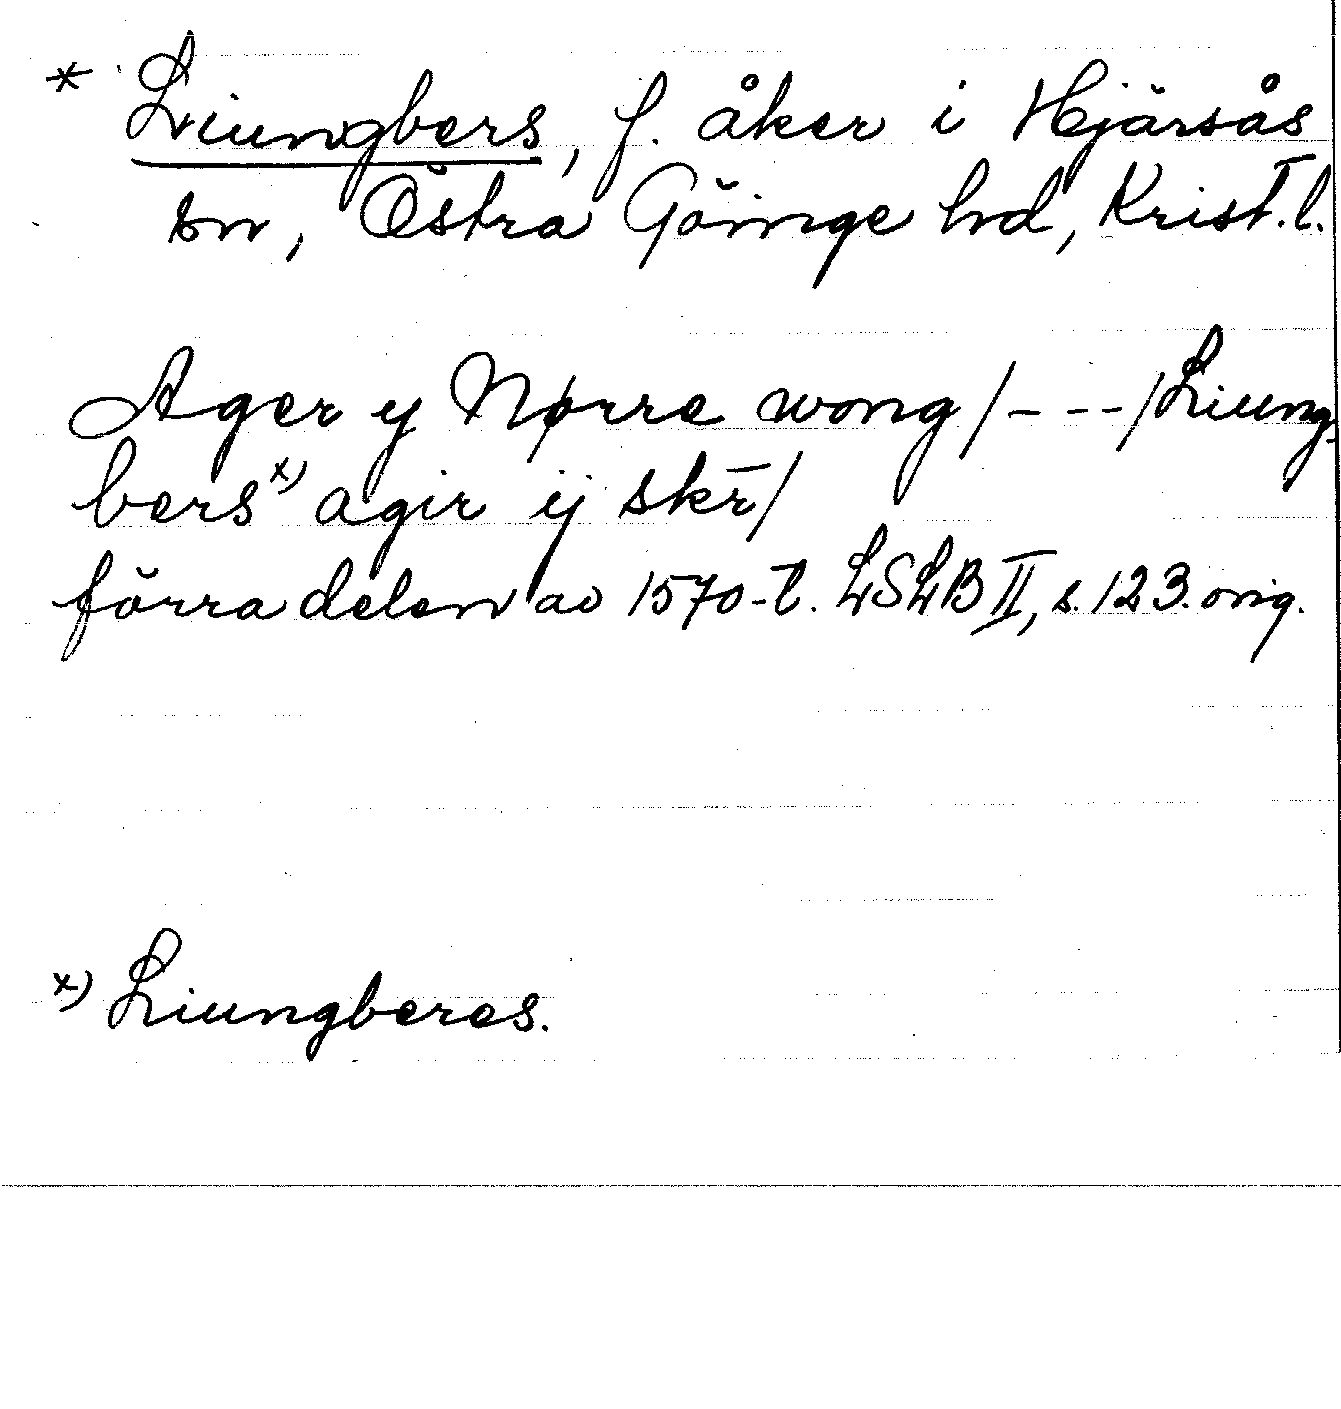 * Liungbers, f. åker i Hjärsås
sn, Östra Göinge hd, Krist. l.
Ager y Nørre wong /---/ Liung-
bers x) agir ij skr̄/
förra delen av 1570-t. LSLB II, s. 123. orig.
x) Liungberes.